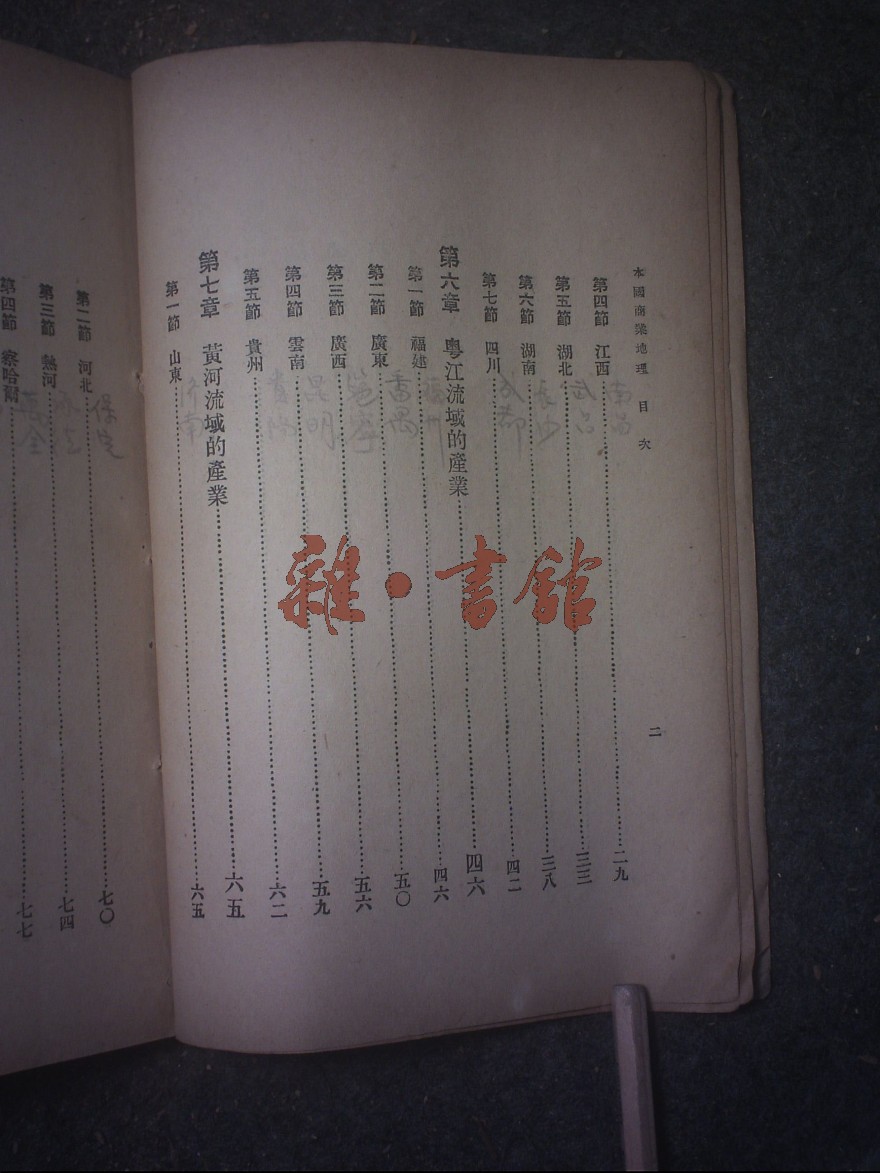 本國商業地理 目次
二
第四節 江西 二九
南昌
第五節 湖北 三三
武昌
第六節 湖南 三八
長沙
第七節 四川 四二
成都
第六章 粵江流域的產業 四六
第一節 福建 四六
福州
第二節 廣東 五〇
番禺
第三節 廣西 五六
邕寧
第四節 雲南 五九
昆明
第五節 貴州 六二
貴陽
第七章 黃河流域的產業 六五
第一節 山東 六五
濟南
第二節 河北 七〇
保定
第三節 熱河 七四
第四節 察哈爾 七七
萬全
雜·書館